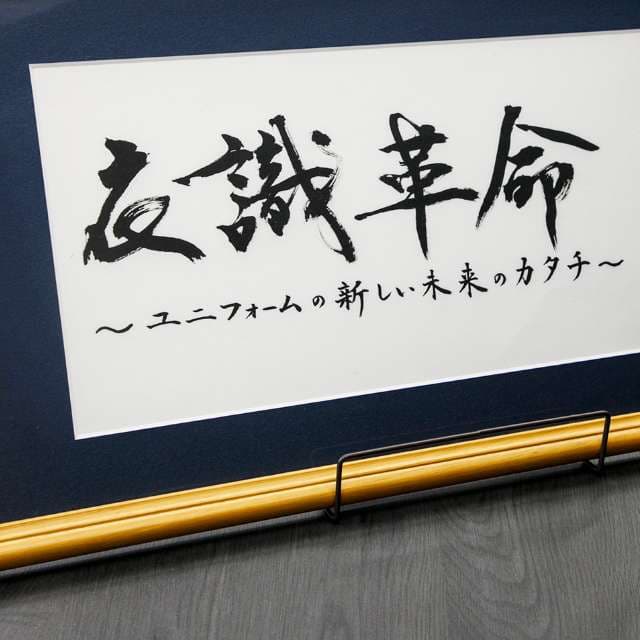 衣識革命
～ユニフォームの新しい未来のカタチ～